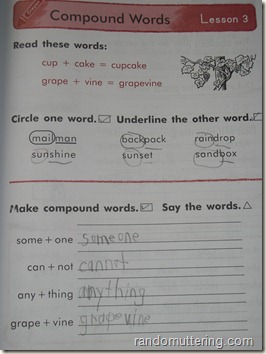 Compound Words Lesson 3
Read these words:
cup + cake = cupcake
grape + vine = grapevine
Circle one word. Underline the other word.
mailman backpack raindrop
sunshine sunset sandbox
Make compound words. Say the words.
some + one someone
can + not cannot
any + thing anything
grape + vine grapevine
randomuttering.com